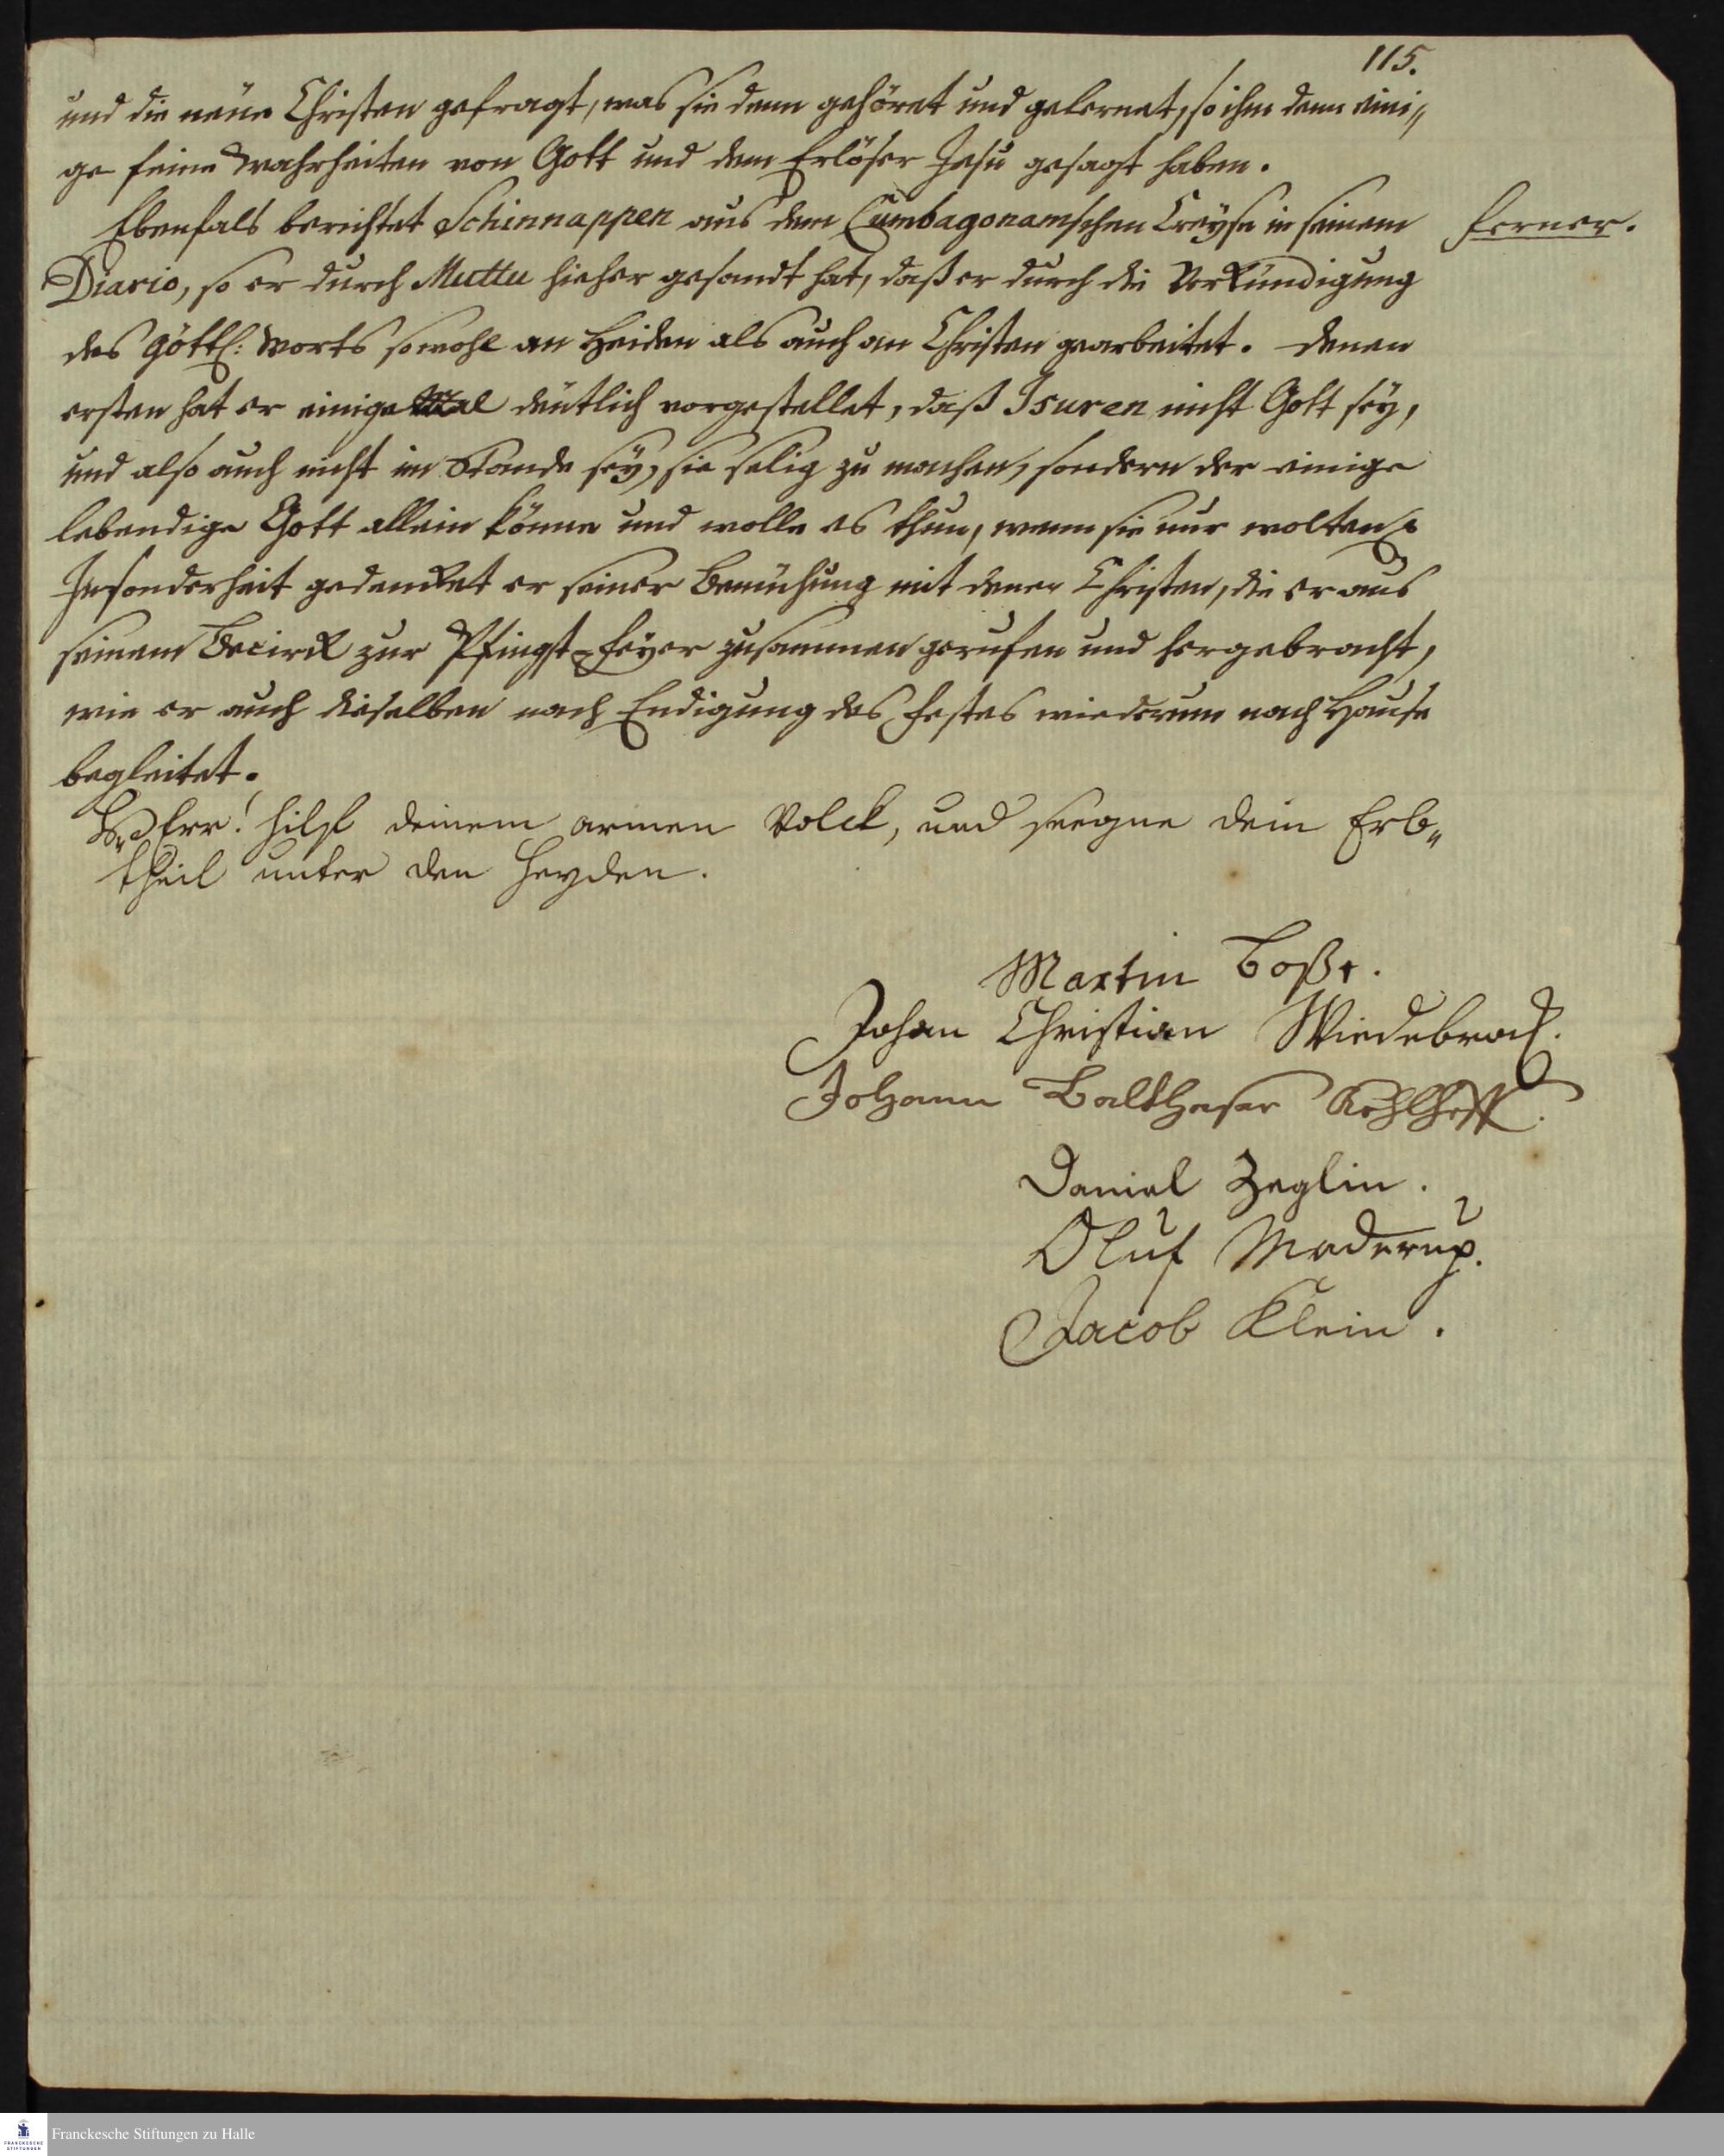 115.
und die neüe Christen gefragt, was sie denn gehöret und gelernet, so ihm denn eini„
ge feine Wahrheiten von Gott und dem Erlöser Jesu gesagt haben.
Ebenfals berichtet Schinnappen aus dem Cumbagonamschen Creyse in seinem
ferner.
Diario, so er durch Muttu hieher gesandt hat, daß er durch die Verkündigung
des göttl: Worts sowohl an Heiden als auch an Christen gearbeitet. Denen
ersten hat er einige Mal deütlich vorgestellet, daß Isuren nicht Gott sey,
und also auch nicht im Stande sey, sie selig zu machen, sondern der einige
lebendige Gott allein könne und wolle es thun, wenn sie nur wolten.
Insonderheit gedencket er seiner Bemühung mit denen Christen, die er aus
seinem Becirck zur Pfingst-Feyer zusammen gerufen und hergebracht,
wie er auch dieselben nach Endigung des Festes wiederum nach Hause
begleitet.
HErr! hilf deinem armen Volck, und seegne dein Erb„
theil unter den Heyden.
Martin Boße.
Johan Christian Wiedebrock.
Johann Balthasar Kohlhoff.
Daniel Zeglin.
Oluf Maderup.
Jacob Klein.
FRANCKESCHE STIFTUNGEN
Franckesche Stiftungen zu Halle